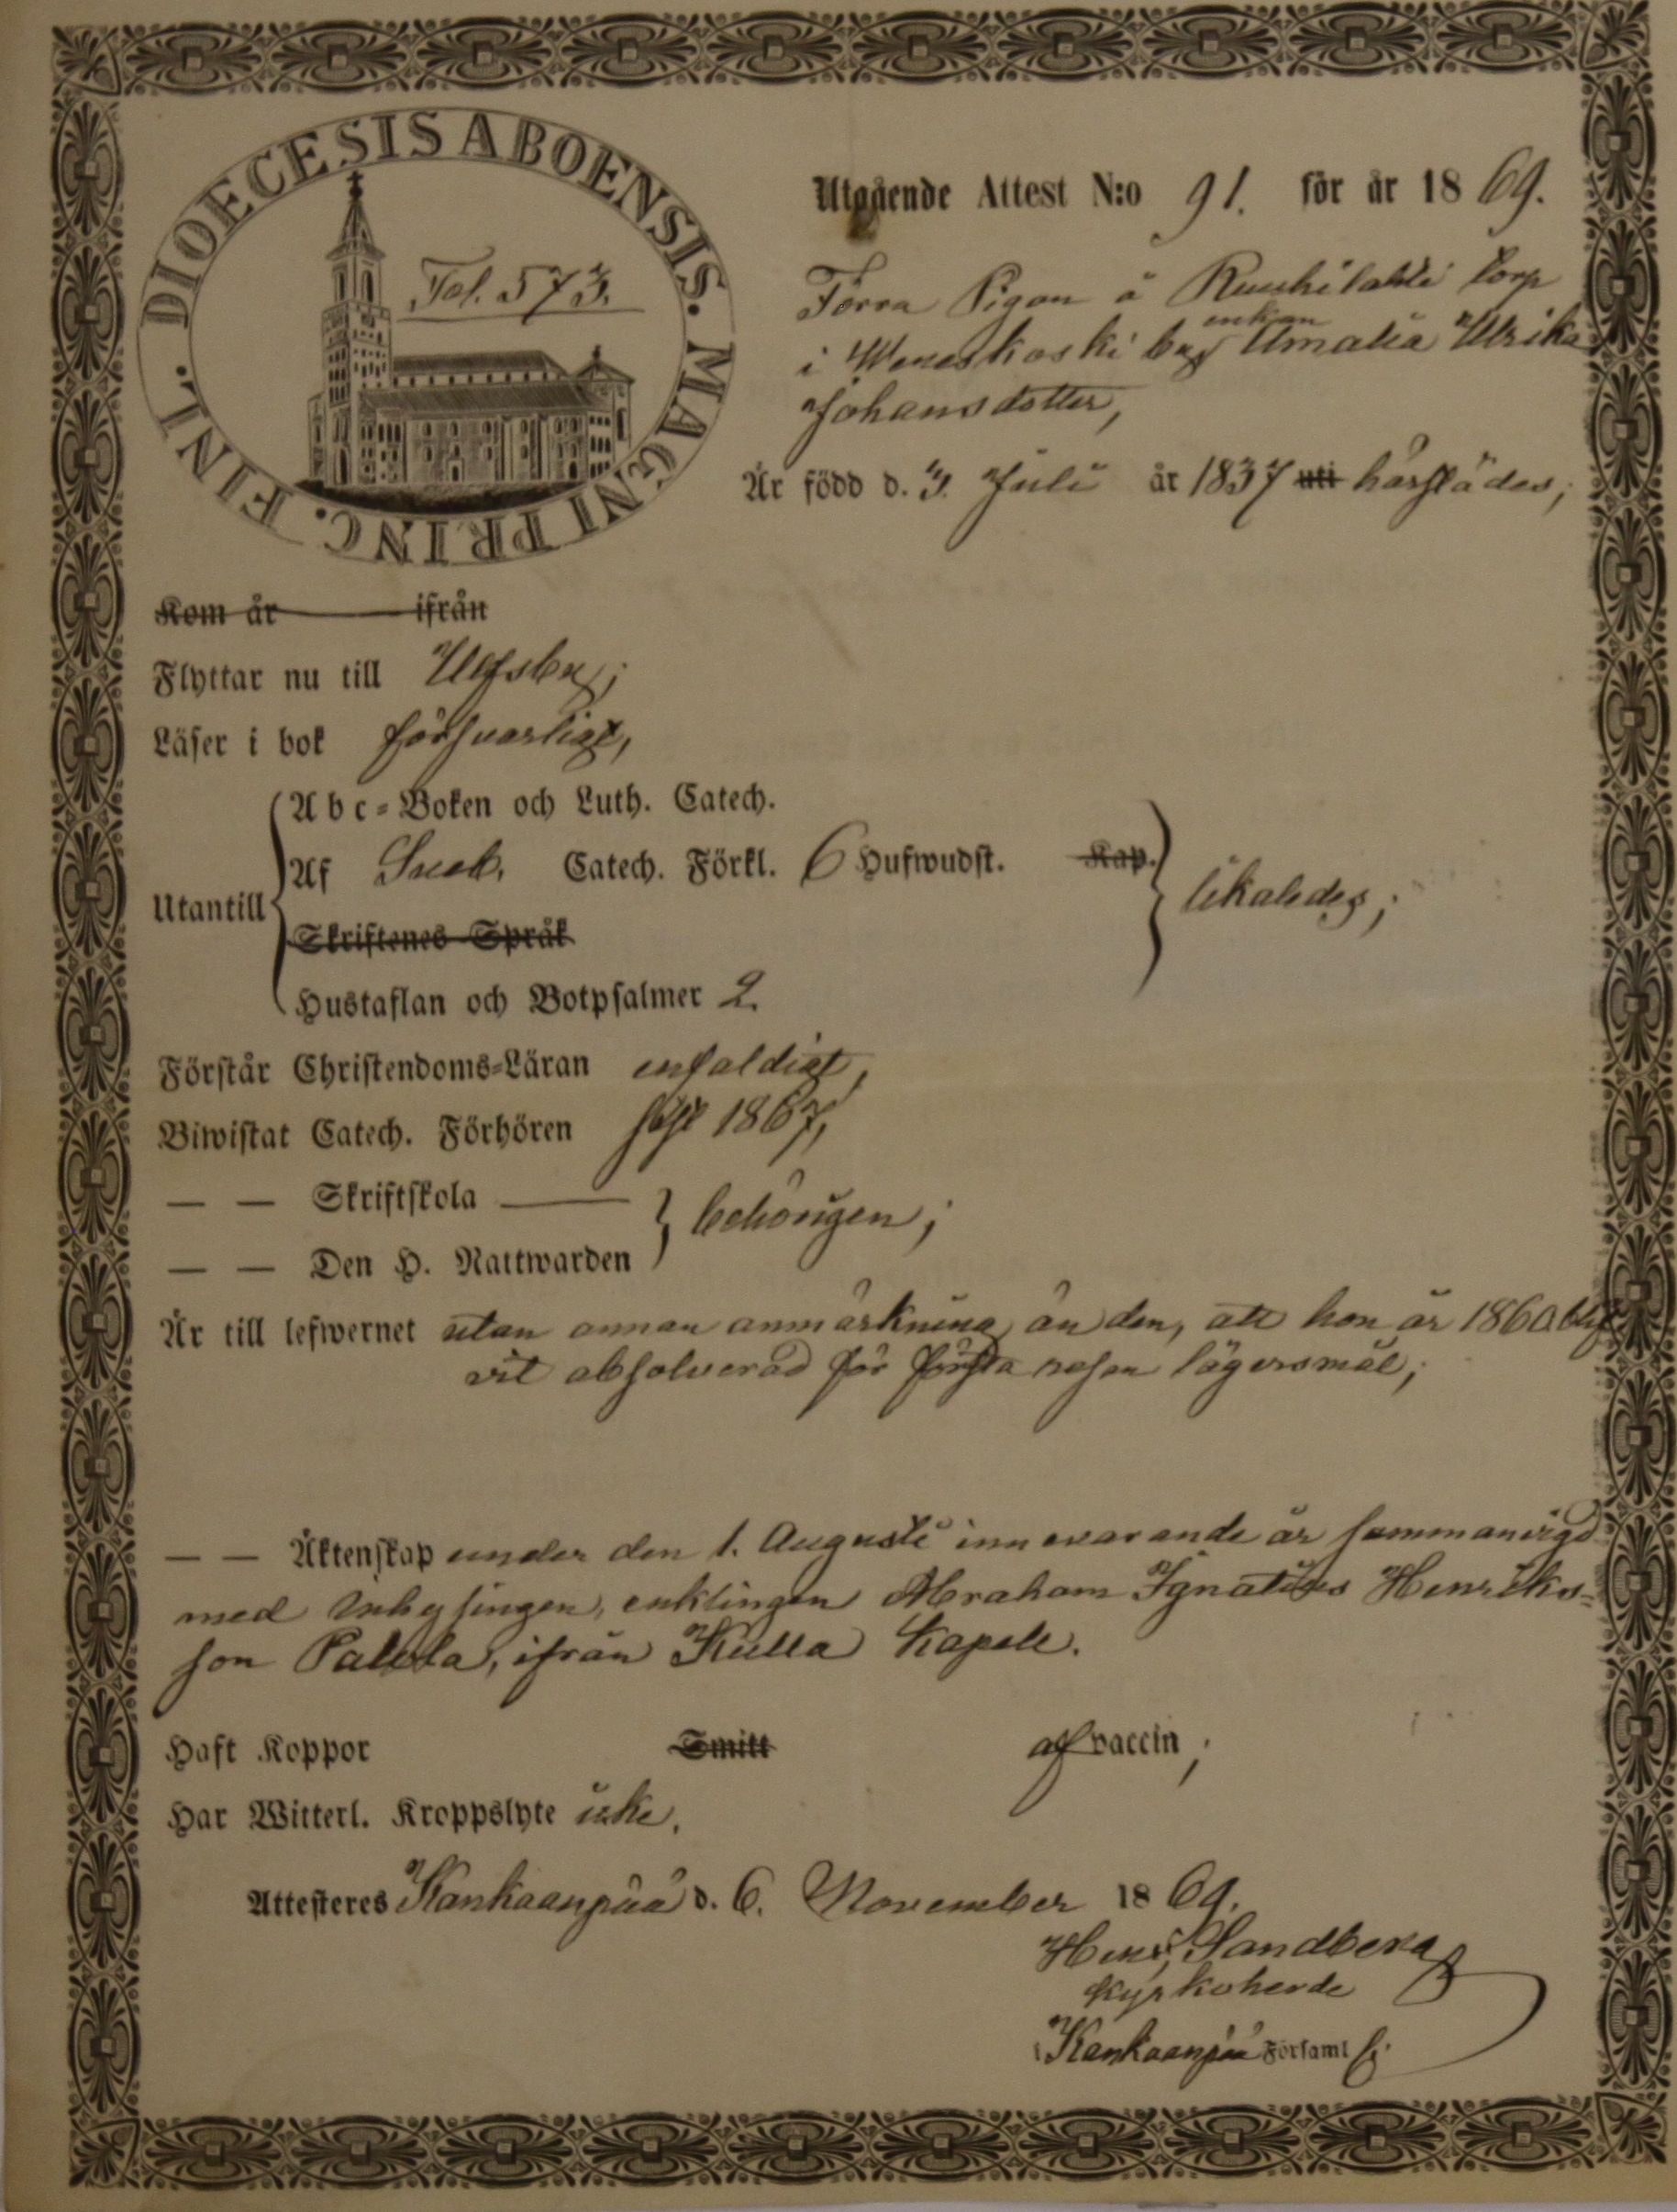 DIOECESIS ABOENSIS. MAGNI PRINC. FINL.
Fol. 573.
Utgående Attest N:o 91. för år 1869.
Förra Pigan å Ruuhilahti torp
i Weneskoski by enkan Amalia Ulrika
Johansdotter,
Är född d. 3. Juli år 1837 uti härstädes;
Kom år ifrån
Flyttar nu till Ulfsby;
Läser i bok försvarligt,
Abc-Boken och Luth. Catech.
Utantill Af Sveb. Catech. Förkl. 6 Hufwudst. Kap. likaledes;
Skriftenes Språk
Hustaflan och Botpsalmer 2.
Förstår Christendoms-Läran enfaldigt,
Biwistat Catech. Förhören sist 1867,
— — Skriftskola —
behörigen;
— — Den H. Nattwarden
Är till lefwernet utan annan anmärkning än den, att hon år 1860 blif
vit absolverad för första resan lägersmål;
— — Äktenskap under den 1. Augusti innevarande år sammanvigd
med inhysingen, enklingen Abraham Ignatius Henriks-
son Palola, ifrån Kulla Kapell.
Haft Koppor Smitt af vaccin;
Har Witterl. Kroppslyte icke.
Attesteres Kankaanpää d. 6. November 1869.
Henr. Sandberg
Kyrkoherde
i Kankaanpää Församl.